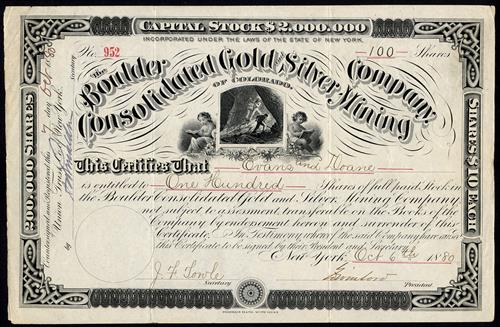 CAPITAL STOCK $2,000,000
INCORPORATED UNDER THE LAWS OF THE STATE OF NEW YORK.
No. 952
100 Shares
The Boulder Company
Consolidated Gold and Silver Mining
OF COLORADO.
This Certifies That Evans and Doane
is entitled to One Hundred Shares of full paid Stock in
the Boulder Consolidated Gold and Silver Mining Company
not subject to assessment, transferable on the Books of the
Company by endorsement hereon and surrender of this
Certificate. In Testimony whereof the said Company have caused
this Certificate to be signed by their President and Secretary.
New York Oct 6th 1880
J. F. Towle
Secretary
President
200,000 SHARES
SHARES $10 EACH
Countersigned and Registered this day Oct 1880
Union Trust Co. of New York.
by
Secretary